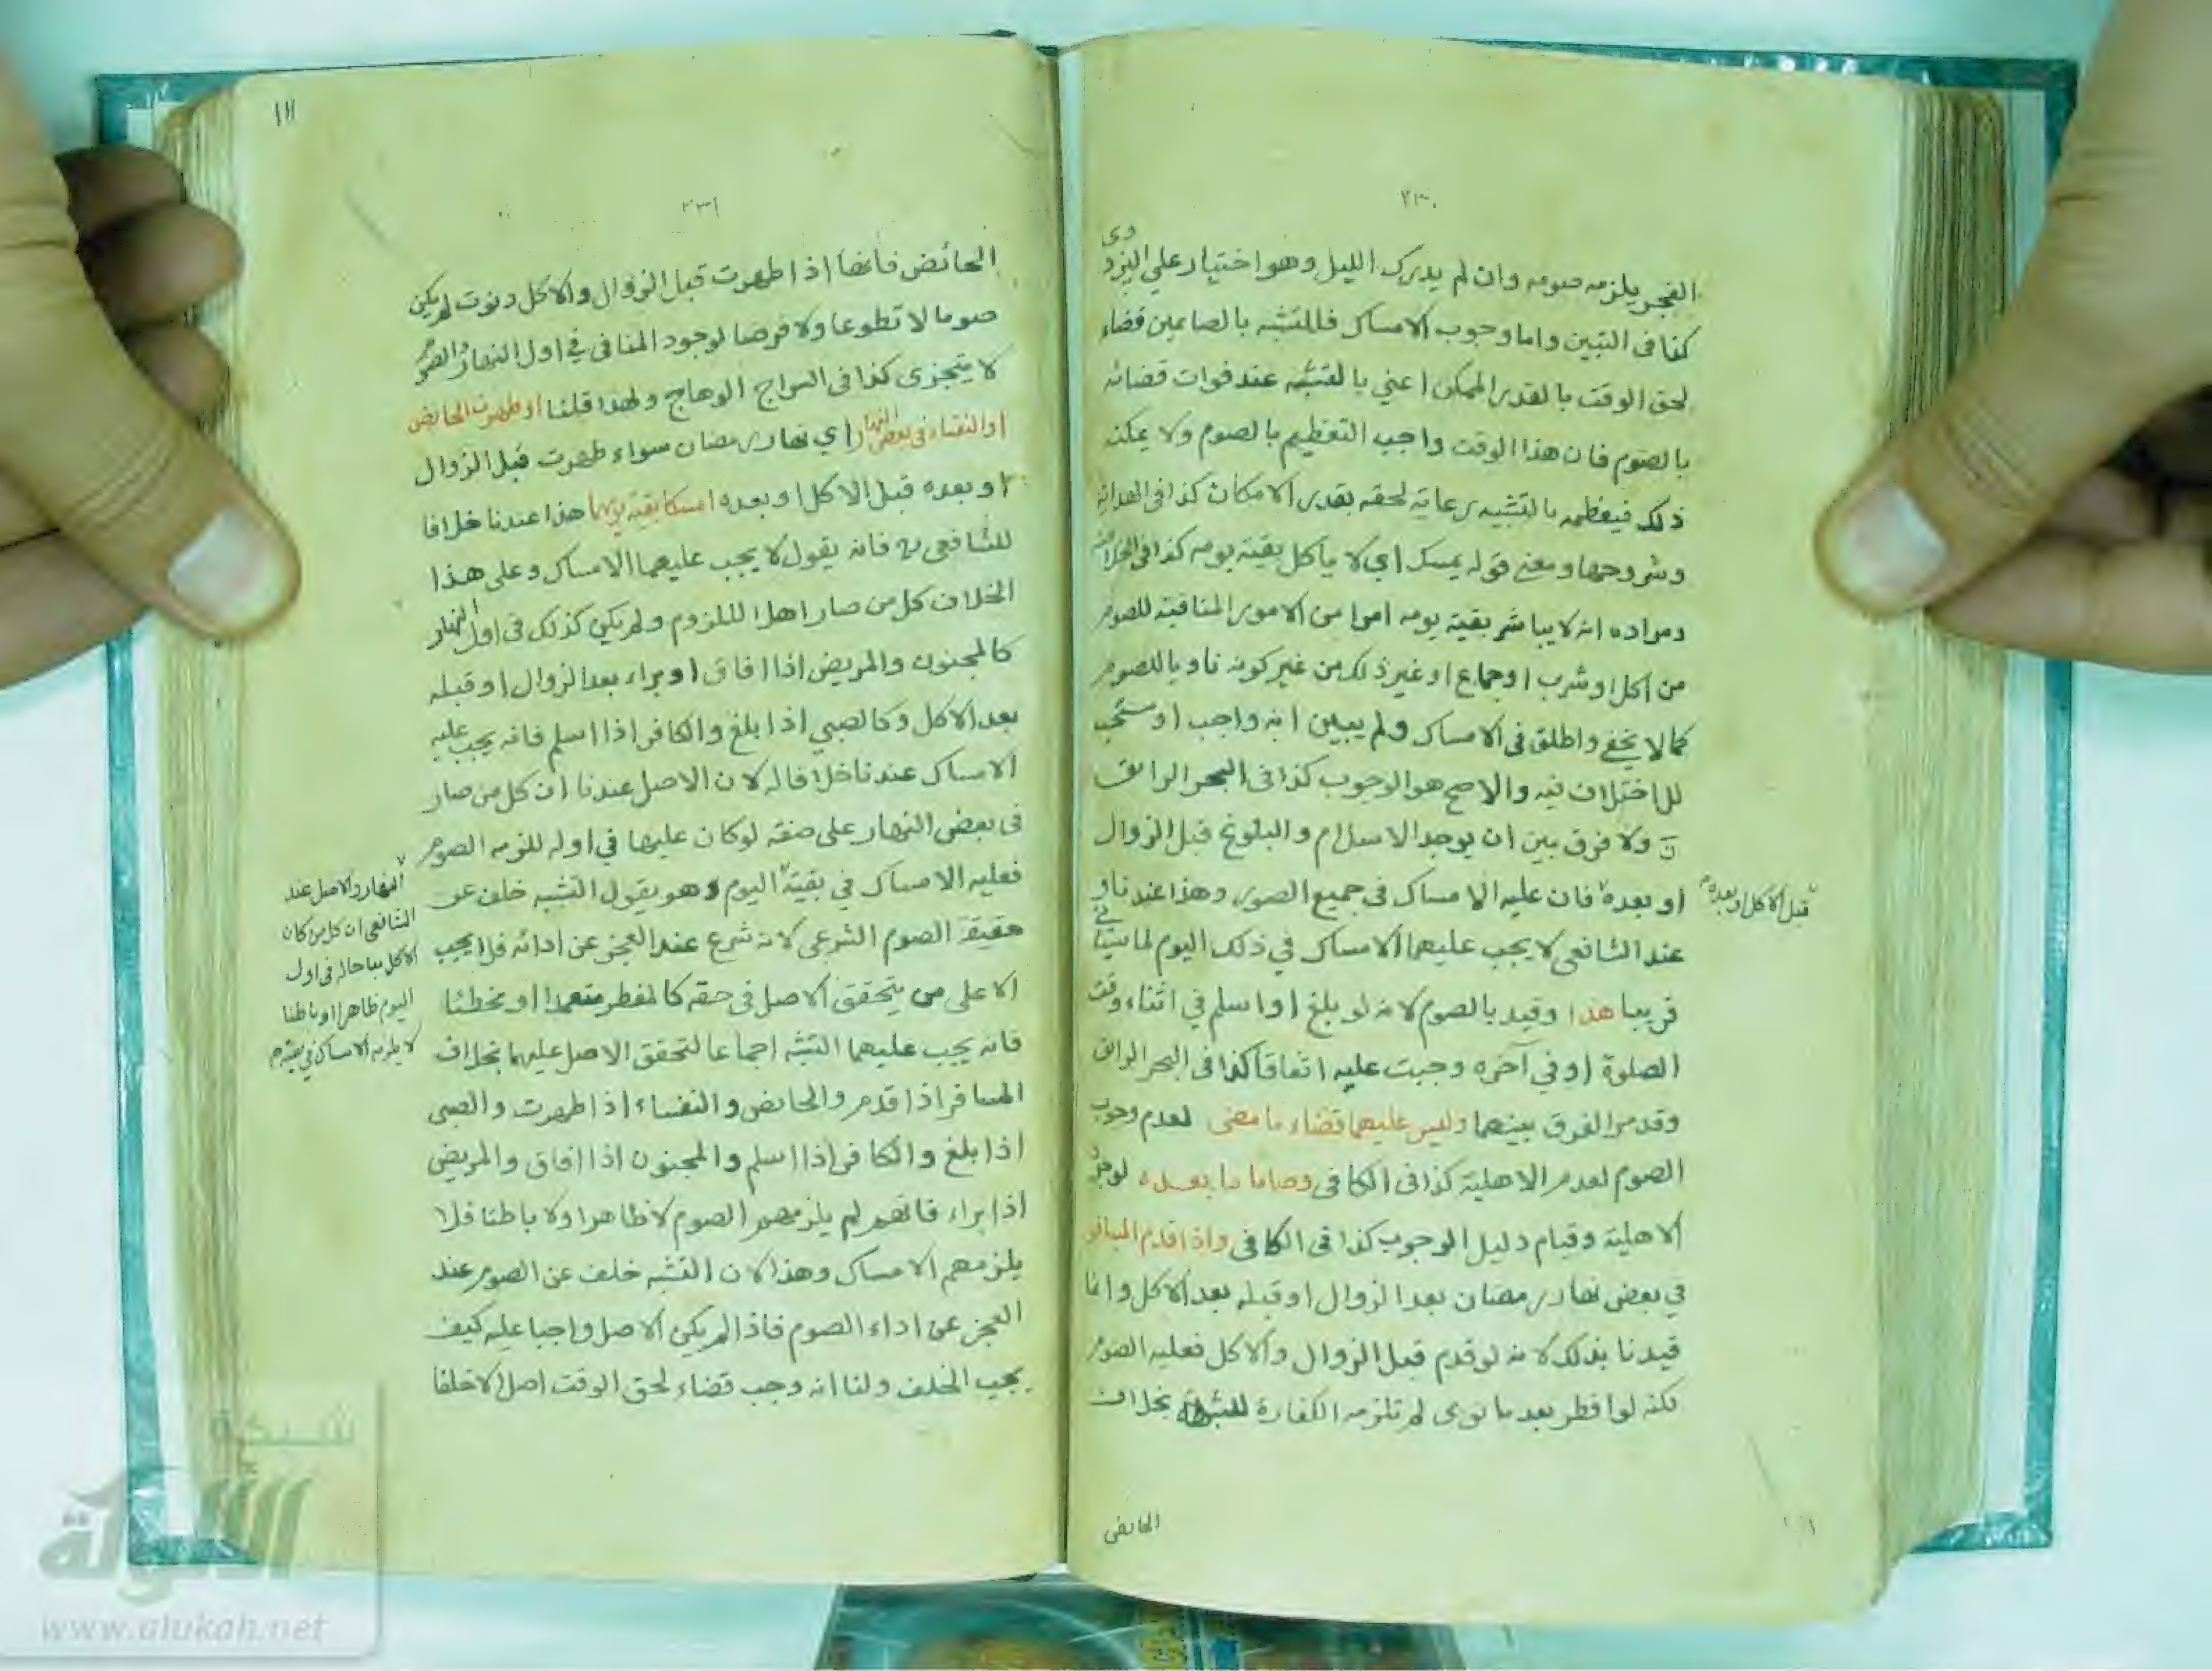 ٢٣٠
الفجر يلزمه صومه وان لم يدرك الليل وهو اختيار علي البزدوى
كذا فى التبين واما وجوب الامساك فالمتشبه بالصايمين قضاء
لحق الوقت بالقدر الممكن اعني بالتشبه عند فوات قضائه
بالصوم فان هذا الوقت واجب التعظيم بالصوم ولا يمكنه
ذلك فيعظمه بالتشبه رعاية لحقه بقدر الامكان كذا فى الهداية
وشروحها ومعنى قوله يمسك اي لا يأكل بقية يومه كذا فى
ومراده انه لا يباشر بقية يومه امرا من الامور المنافية للصوم
من اكل او شرب او جماع او غير ذلك من غير كونه ناويا للصوم
كما لا يخفى واطلق فى الامساك ولم يبين انه واجب او مستحب
للاختلاف فيه والاصح هو الوجوب كذا فى البحر الرائق
ولا فرق بين ان يوجد الاسلام والبلوغ قبل الزوال
او بعده فان عليه الامساك فى جميع الصور وهذا عندنا و
قبل الاكل او بعده
عند الشافعى لا يجب عليهما الامساك في ذلك اليوم لما سيأتي
قريبا هذا وقيد بالصوم لانه لو بلغ او اسلم في اثناء وقت
الصلوة او في آخره وجبت عليه اتفاقا كذا فى البحر الرائق
وقدمر الفرق بينهما وليس عليهما قضاء ما مضى لعدم وجوب
الصوم لعدم الاهلية كذا فى الكافى وصاما ما بعده لوجود
الاهلية وقيام دليل الوجوب كذا فى الكافى واذا قدم المسافر
في بعض نهار رمضان بعد الزوال او قبله بعد الاكل وانما
قيدنا بذلك لانه لو قدم قبل الزوال والاكل فعليه الصوم
لكنه لو افطر بعد ما نوى لم تلزمه الكفارة للشبهة بخلاف
الحايض
١١١
٢٣١
الحائض فانها اذا طهرت قبل الزوال والاكل ونوت لم يكن
صوما لا تطوعا ولا فرضا لوجود المنافى في اول النهار والصوم
لا يتجزى كذا فى السراج الوهاج ولهذا قلنا او طهرت الحايض
او النفساء فى بعض النهار اي نهار رمضان سواء طهرت قبل الزوال
او بعده قبل الاكل او بعده امسكا بقية يومهما هذا عندنا خلافا
للشافعى رح فانه يقول لا يجب عليهما الامساك وعلى هذا
الخلاف كل من صار اهلا لللزوم ولم يكن كذلك فى اول النهار
كالمجنون والمريض اذا افاق او براء بعد الزوال او قبله
بعد الاكل وكالصبي اذا بلغ والكافر اذا اسلم فانه يجب عليه
الامساك عندنا خلافا له لان الاصل عندنا ان كل من صار
فى بعض النهار على صفة لو كان عليها في اوله للزمه الصوم
فعليه الامساك في بقية اليوم وهو يقول التشبه خلف عن
حقيقة الصوم الشرعى لانه شرع عند العجز عن ادائه فلا يجب
الا على من يتحقق الاصل فى حقه كالمفطر متعمدا او مخطئا
فانه يجب عليهما التشبه اجماعا لتحقق الاصل عليهما بخلاف
المسافر اذا قدم والحائض والنفساء اذا طهرت والصبى
اذا بلغ والكافر اذا اسلم والمجنون اذا افاق والمريض
اذا براء فانهم لم يلزمهم الصوم لا ظاهرا ولا باطنا فلا
يلزمهم الامساك وهذا لان التشبه خلف عن الصوم عند
العجز عن اداء الصوم فاذا لم يكن الاصل واجبا عليه كيف
يجب الخلف ولنا انه وجب قضاء لحق الوقت اصلا لا خلفا
النهار والاصل عند
الشافعى ان كل من كان
الاكل مباحا له فى اول
اليوم ظاهرا او باطنا
لا يلزمه الامساك في بقيته
شبكة
الألوكة
www.alukah.net